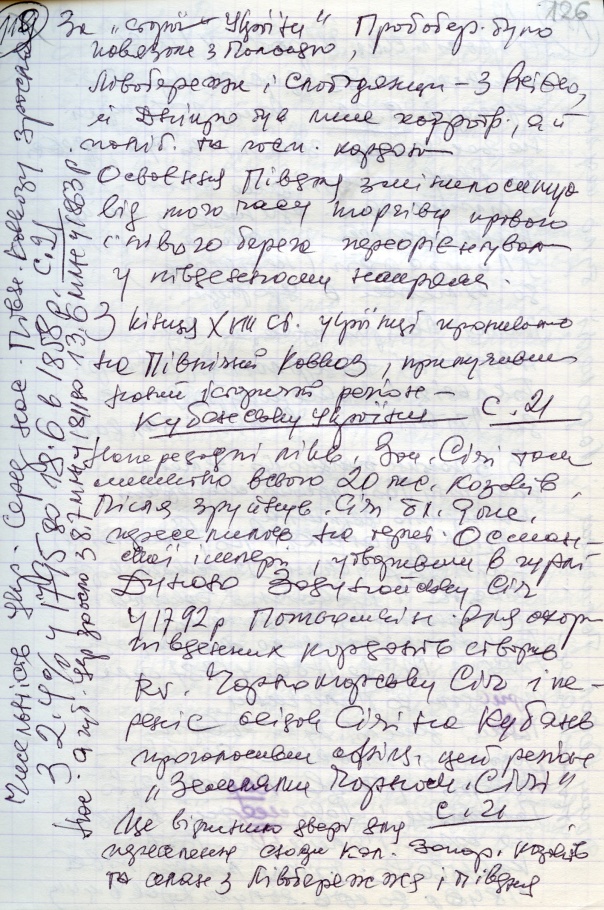 119
126
За „старої України" Правобер. було
повязане з Польщею,
Лівобережжя і Слобідянщи – з Росією,
й Дніпро був не лише , а й
та госп. кордон
Освоєння Півдня
від того часу торгівля правого
і лівого берега переорієнтував
у південному напрямі.
З кінця XVIII ст. українці проживають
на Північний Кавказ,
новий історичний регіон –
Кубанську Україну с. 21
Напередодні лікв. Зап. Січі там
мешкало всього 20 тис. козаків,
Після зруйнув. Січі бл. 9 тис.
переселилось на терит. Осман-
ської імперії, утворивши в гирлі
Дунаю Задунайську Січ
У 1792 р Потьомкін для охор
південних кордонів створив
Чорноморську Січ і пе-
реніс осідок Січі на Кубань
проголосивши офіц. цей регіон
„Землями Чорном. Січі"
с. 21
Це відчинило двері для
переселення сюди кол. Запор. козаків
та селян з Лівобережжя і Півдня
Чисельність укр. серед нас. Півн. Кавказу зростала
з 2.4% у 1795 до 18.6 в 1858 р. с. 21
Нас. укр зросло з 8.7 млн у 1811 до 13.6 млн у 1863 р